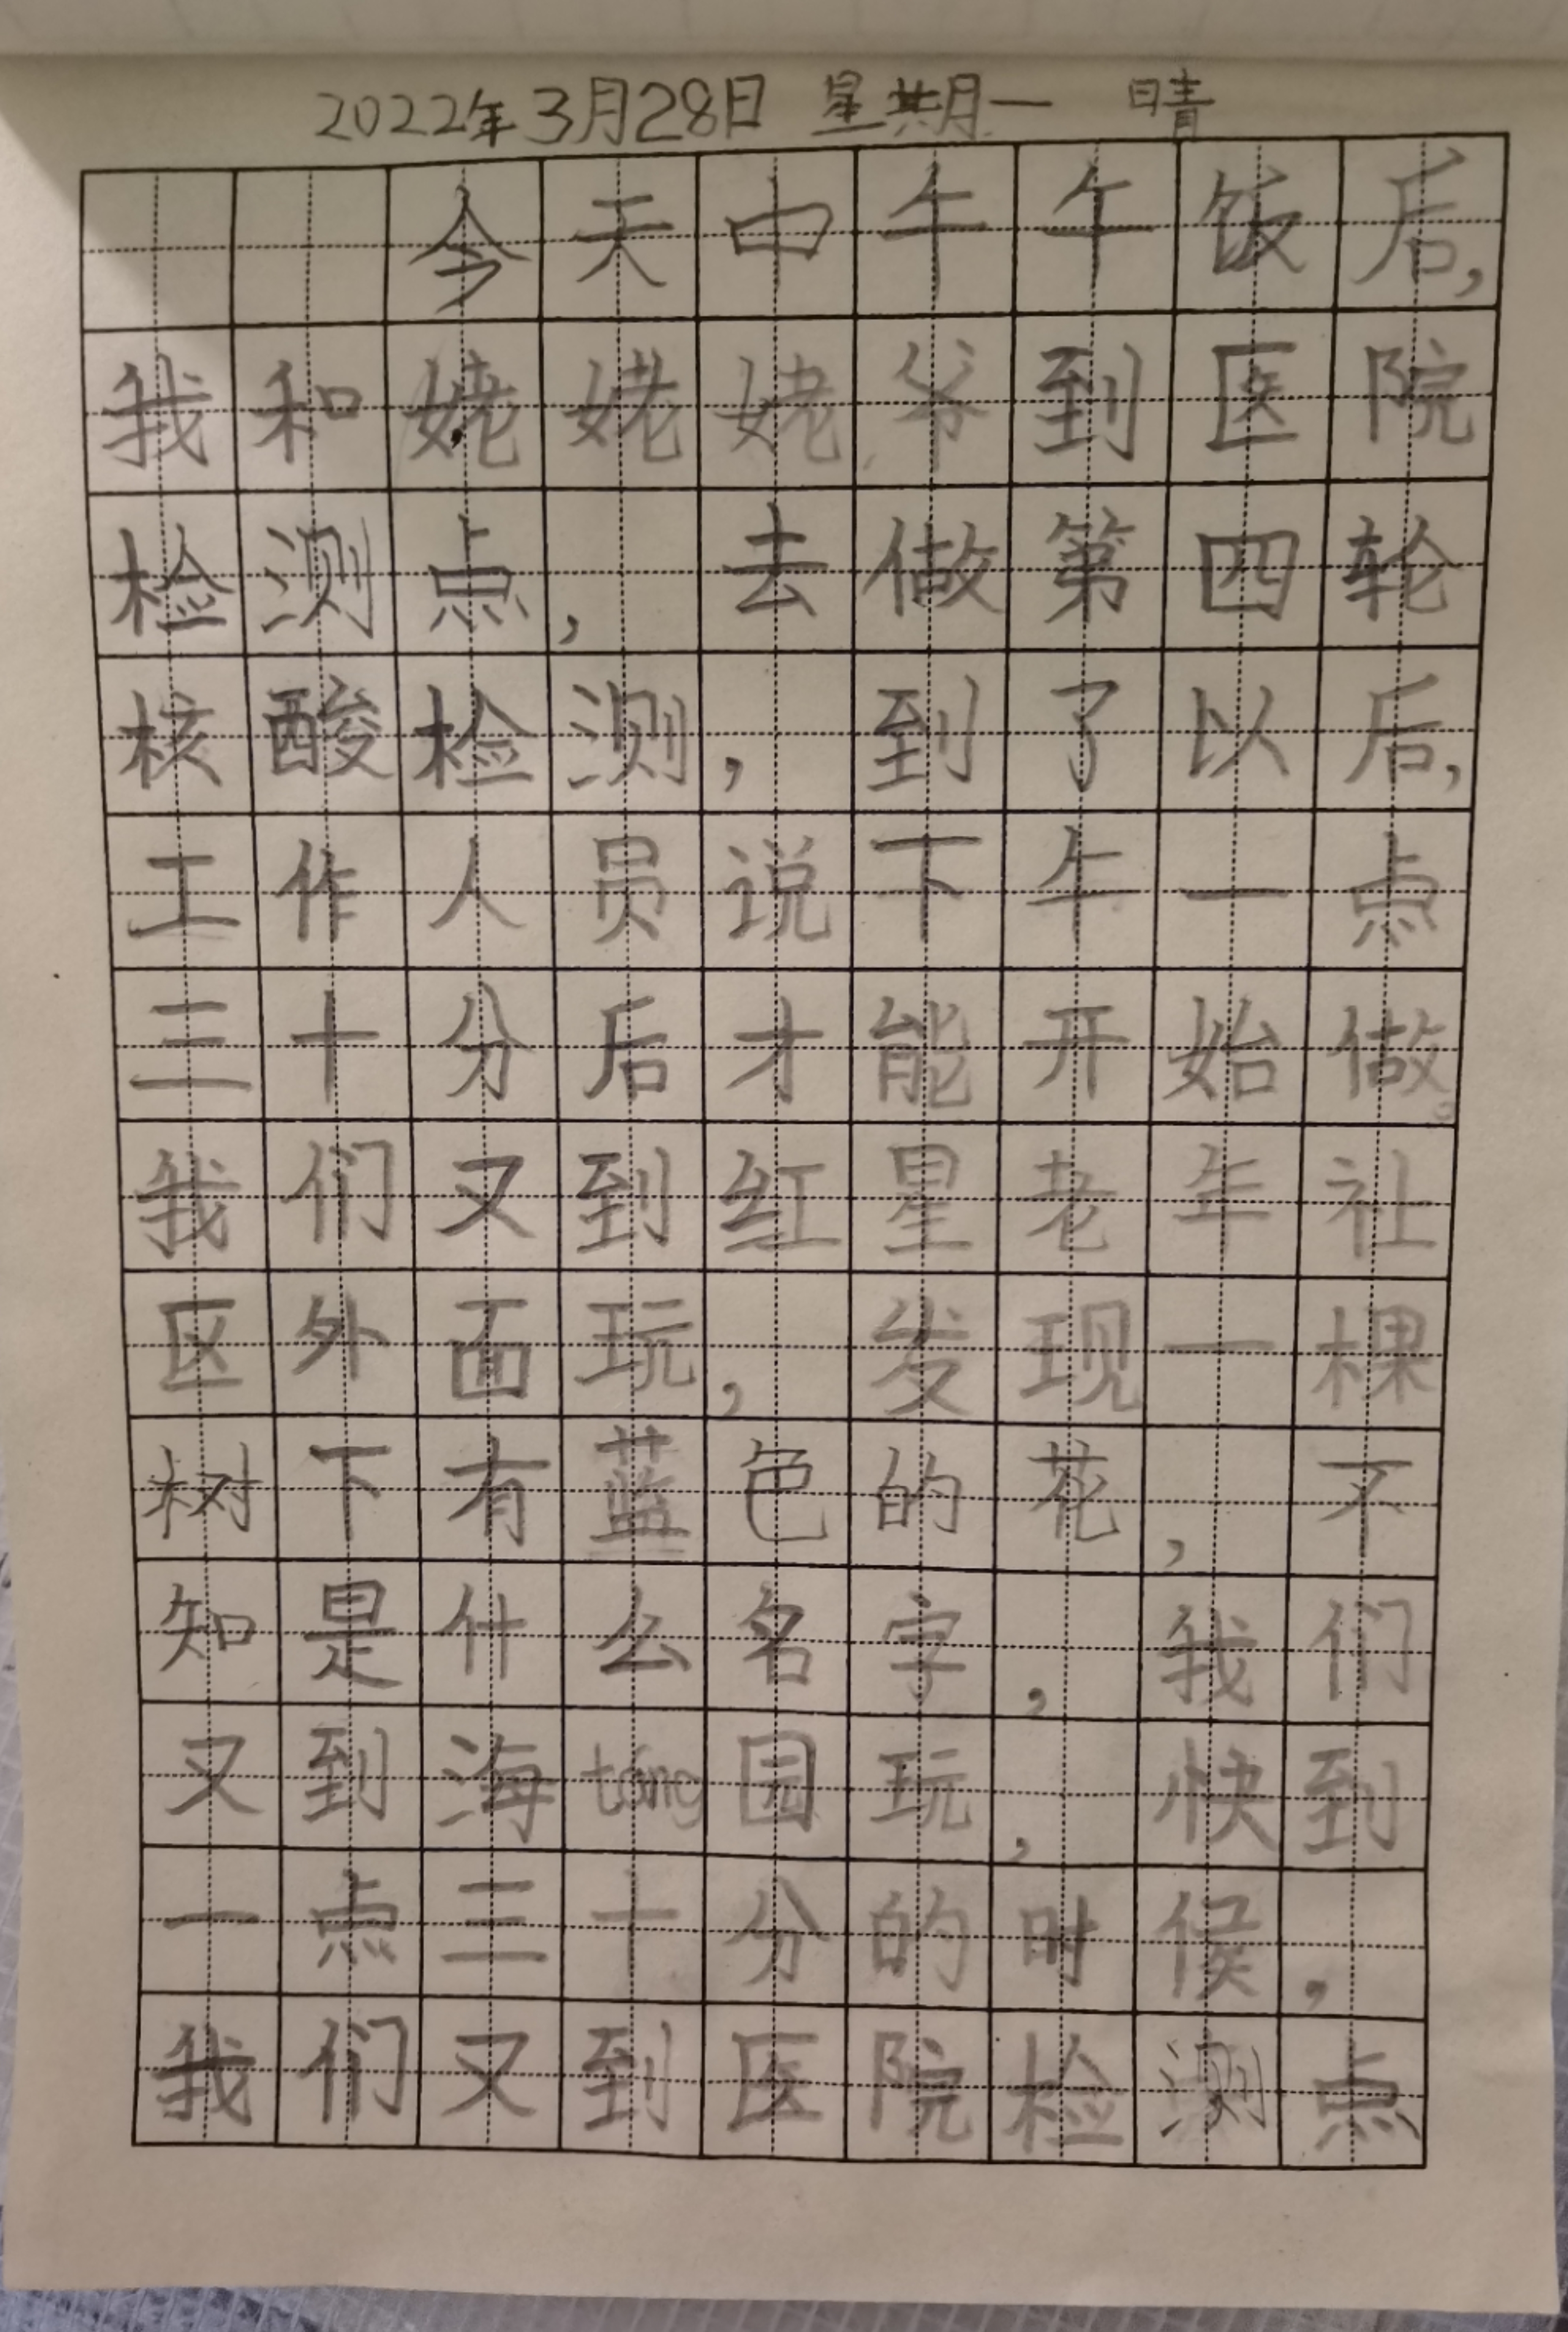 2022年3月28日 星期一 晴
今天中午午饭后,
我和姥姥姥爷到医院
检测点,去做第四轮
核酸检测,到了以后,
工作人员说下午一点
三十分后才能开始做。
我们又到红星老年社
区外面玩,发现一棵
树下有蓝色的花,不
知是什么名字,我们
又到海táng园玩,快到
一点三十分的时候,
我们又到医院检测点